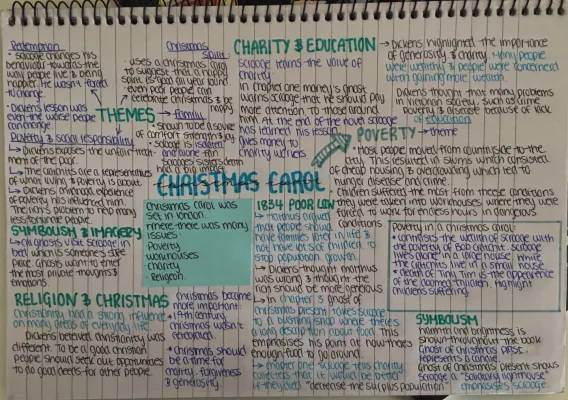 Redemption
• Scrooge changes his
behaviour towards the
way people live & being
happier. He wasn't forced
to change.
• Dickens lesson was
even the worse people
can change.
Poverty & social responsibility
↳ Dickens exposes the unfair treat-
ment of the poor.
↳ The Cratchits are a representatives
of what living & poverty is about.
↳ Dickens childhood experience
of poverty has influenced him
The rich's problem to help many
less fortunate people.
THEMES
Christmas
Spirit
• uses a Christmas Carol
to suggest that a happy
spirit is good all year round
- even poor people can
celebrate Christmas & be
happy
→ Family
• shown to be a source
of comfort, strength & joy
• Scrooge is isolated
and alone - Fan
Scrooge's sister
had a big impact
CHRISTMAS CAROL
Christmas Carol was
set in London.
Where there was many
issues
Poverty
Workhouses
Charity
Religion
SYMBOLISM & IMAGERY
↳ All ghosts visit Scrooge in
bed which is someone's safe
place. Ghosts want to enter
the most private thoughts &
emotions.
RELIGION & CHRISTMAS
Christianity had a strong influence
on many areas of everyday life.
Dickens believed Christianity was
different. To be a good Christian
people should seek out oppurtunities
to do good deeds for other people.
Christmas became
more important
19th century
Christmas wasn't
• Christmas should
be a time for
charity, forgiveness
& generosity.
CHARITY & EDUCATION
Scrooge learns the value of
charity
In chapter one Marley's ghost
warns Scrooge that he should pay
more attention to those around
him. At the end of the novel Scrooge
has learned his lesson
gives money to
charity workers
→ Dickens highlighted the importance
of generosity & charity. Many people
were wealthy & people were concerned
with gaining more wealth
Dickens thought that many problems
in Victorian society, such as crime,
poverty & disease because of lack
of education
POVERTY → theme
• Most people moved from countryside to the
city. This resulted in slums which consisted
of cheap housing & overcrowding which led to
hunger, disease and crime.
Children suffered the most from these conditions
they were taken into workhouses where they were
forced to work for endless hours in dangerous
conditions
1834 POOR LAW
↳ Malthus argued
that people should
have families later in life &
not have lots of children to
stop population growth.
↳ Dickens thought Malthus
was wrong & thought the rich
should be more generous
↳ In chapter 3 ghost of
Christmas present takes Scrooge
to a bustling shop where there's
a long description about food. This
emphasises his point at how there's
enough food to go around.
↳ Chapter one Scrooge tells charity
collectors that it would be better
if they died "decrease the surplus population"
Poverty in a Christmas Carol:
• Contrasts the wealth of Scrooge with
the poverty of Bob Cratchit. Scrooge
lives alone in a large house while
the Cratchits live in a small house
• Death of Tiny Tim is the appearance
of the doomed children. Highlight
childrens suffering.
SYMBOLISM
Warmth and brightness is
shown throughout the book
Ghost of Christmas past
represents a candle.
Ghost of Christmas present shows
Scrooge a "solitary lighthouse"
emphasises Scrooge